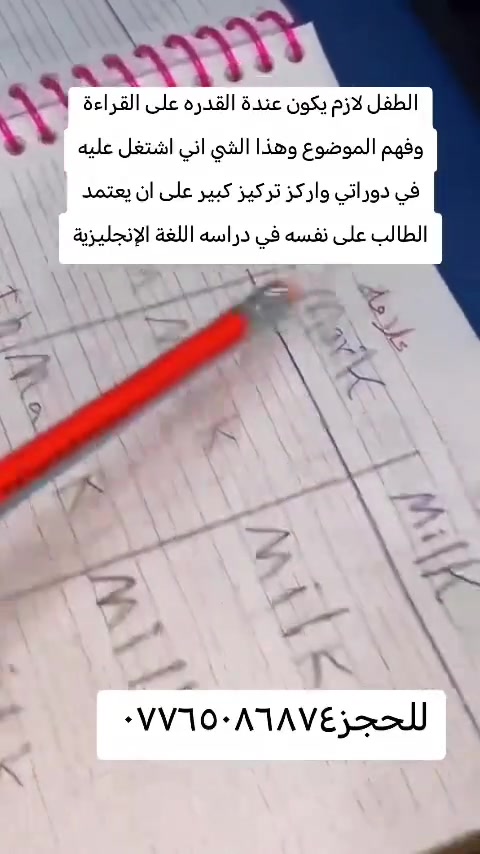 الطفل لازم يكون عندة القدره على القراءة
وفهم الموضوع وهذا الشي اني اشتغل عليه
في دوراتي واركز تركيز كبير على ان يعتمد
الطالب على نفسه في دراسه اللغة الإنجليزية
علامة
Mark
Milk
Milk
Milk
للحجز٠٧٧٦٥٠٨٦٨٧٤